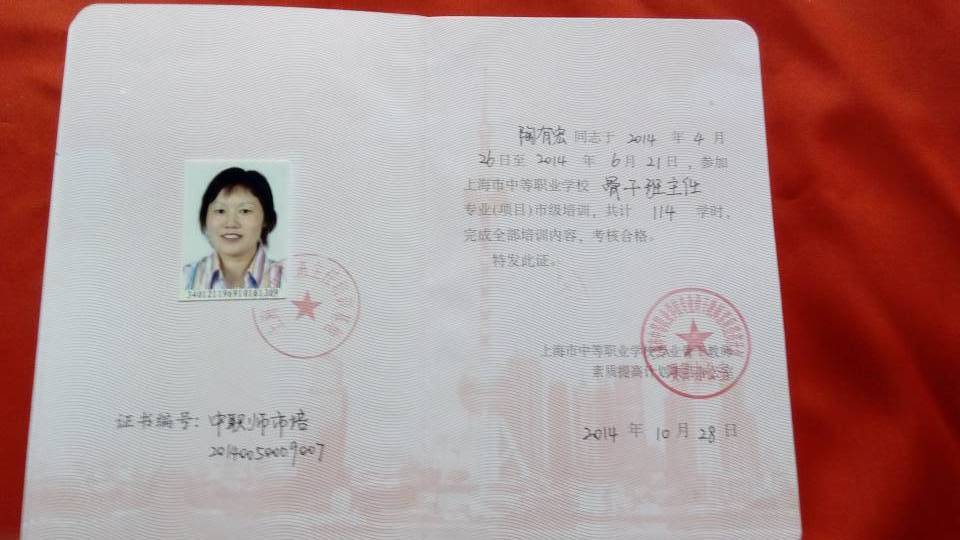 陶有宏同志于 2014 年 4 月
26日至 2014 年 6 月 21日，参加
上海市中等职业学校 骨干班主任
专业(项目)市级培训，共计 114 学时，
完成全部培训内容，考核合格。
特发此证。
上海市中等职业学校专业骨干教师
素质提高计划项目办公室
2014 年 10 月 28 日
证书编号：中职师市培